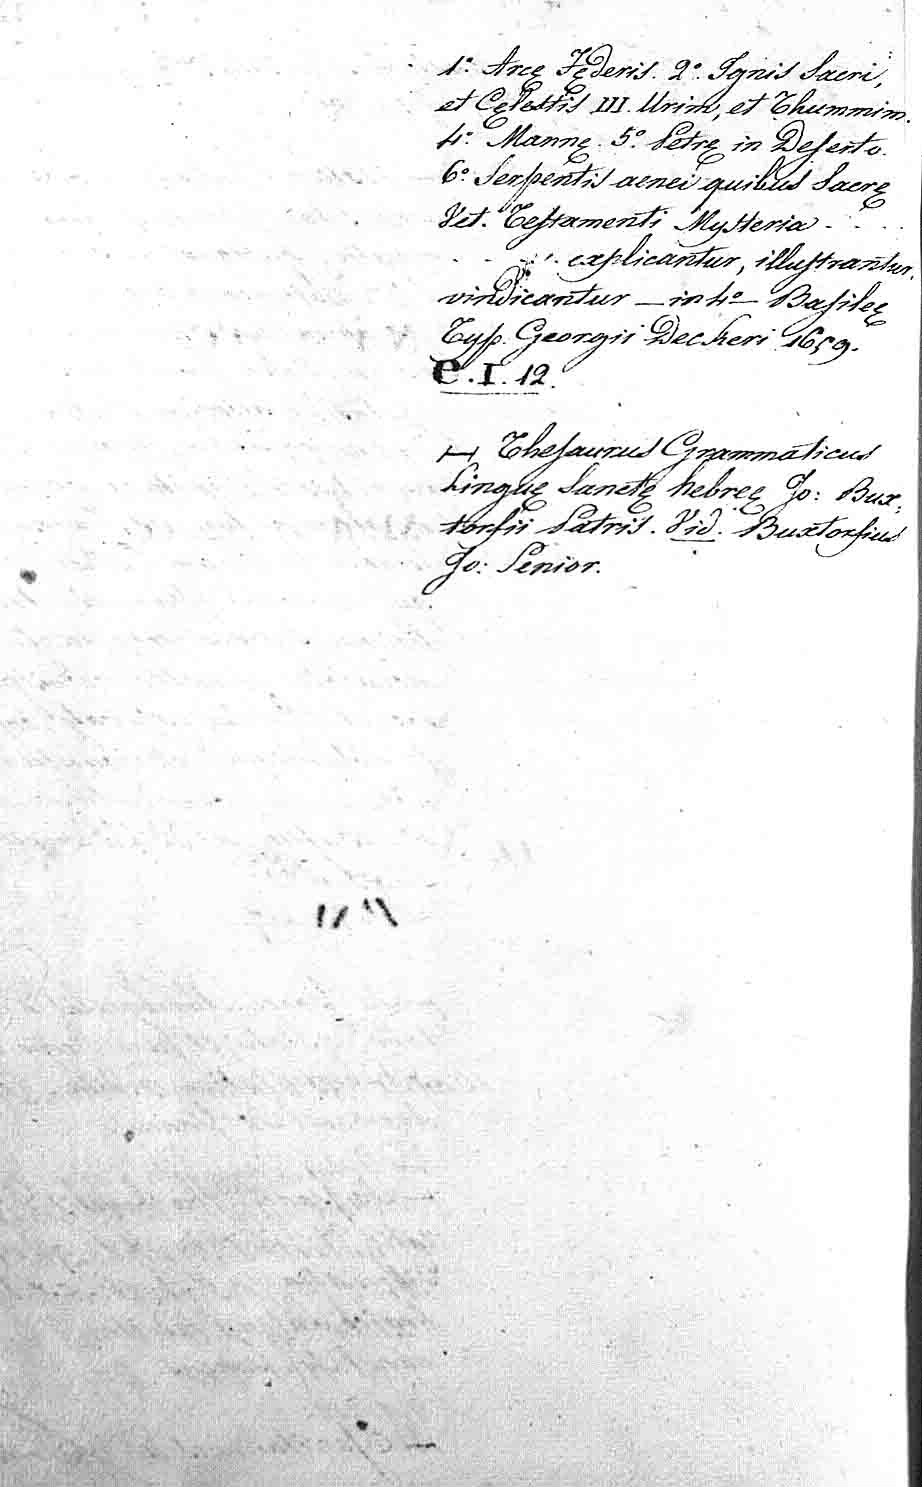 1.° Arcę Fęderis. 2.° Ignis Sacri,
et Cęlestis III. Urim, et Thummim.
4.° Mannę. 5.° Petrę in Deserto.
6.° Serpentis aenei quibus Sacrę
Vet. Testamenti Mysteria . . . .
. . . . explicantur, illustrantur,
vindicantur — in 4.° — Basileę
Typ. Georgii Deckeri 1659.
e. I. 12.
— Thesaurus Grammaticus
Linguę Sanctę hebreę Jo: Bux,
torfii Patris. Vid. Buxtorfius
Jo: Senior.